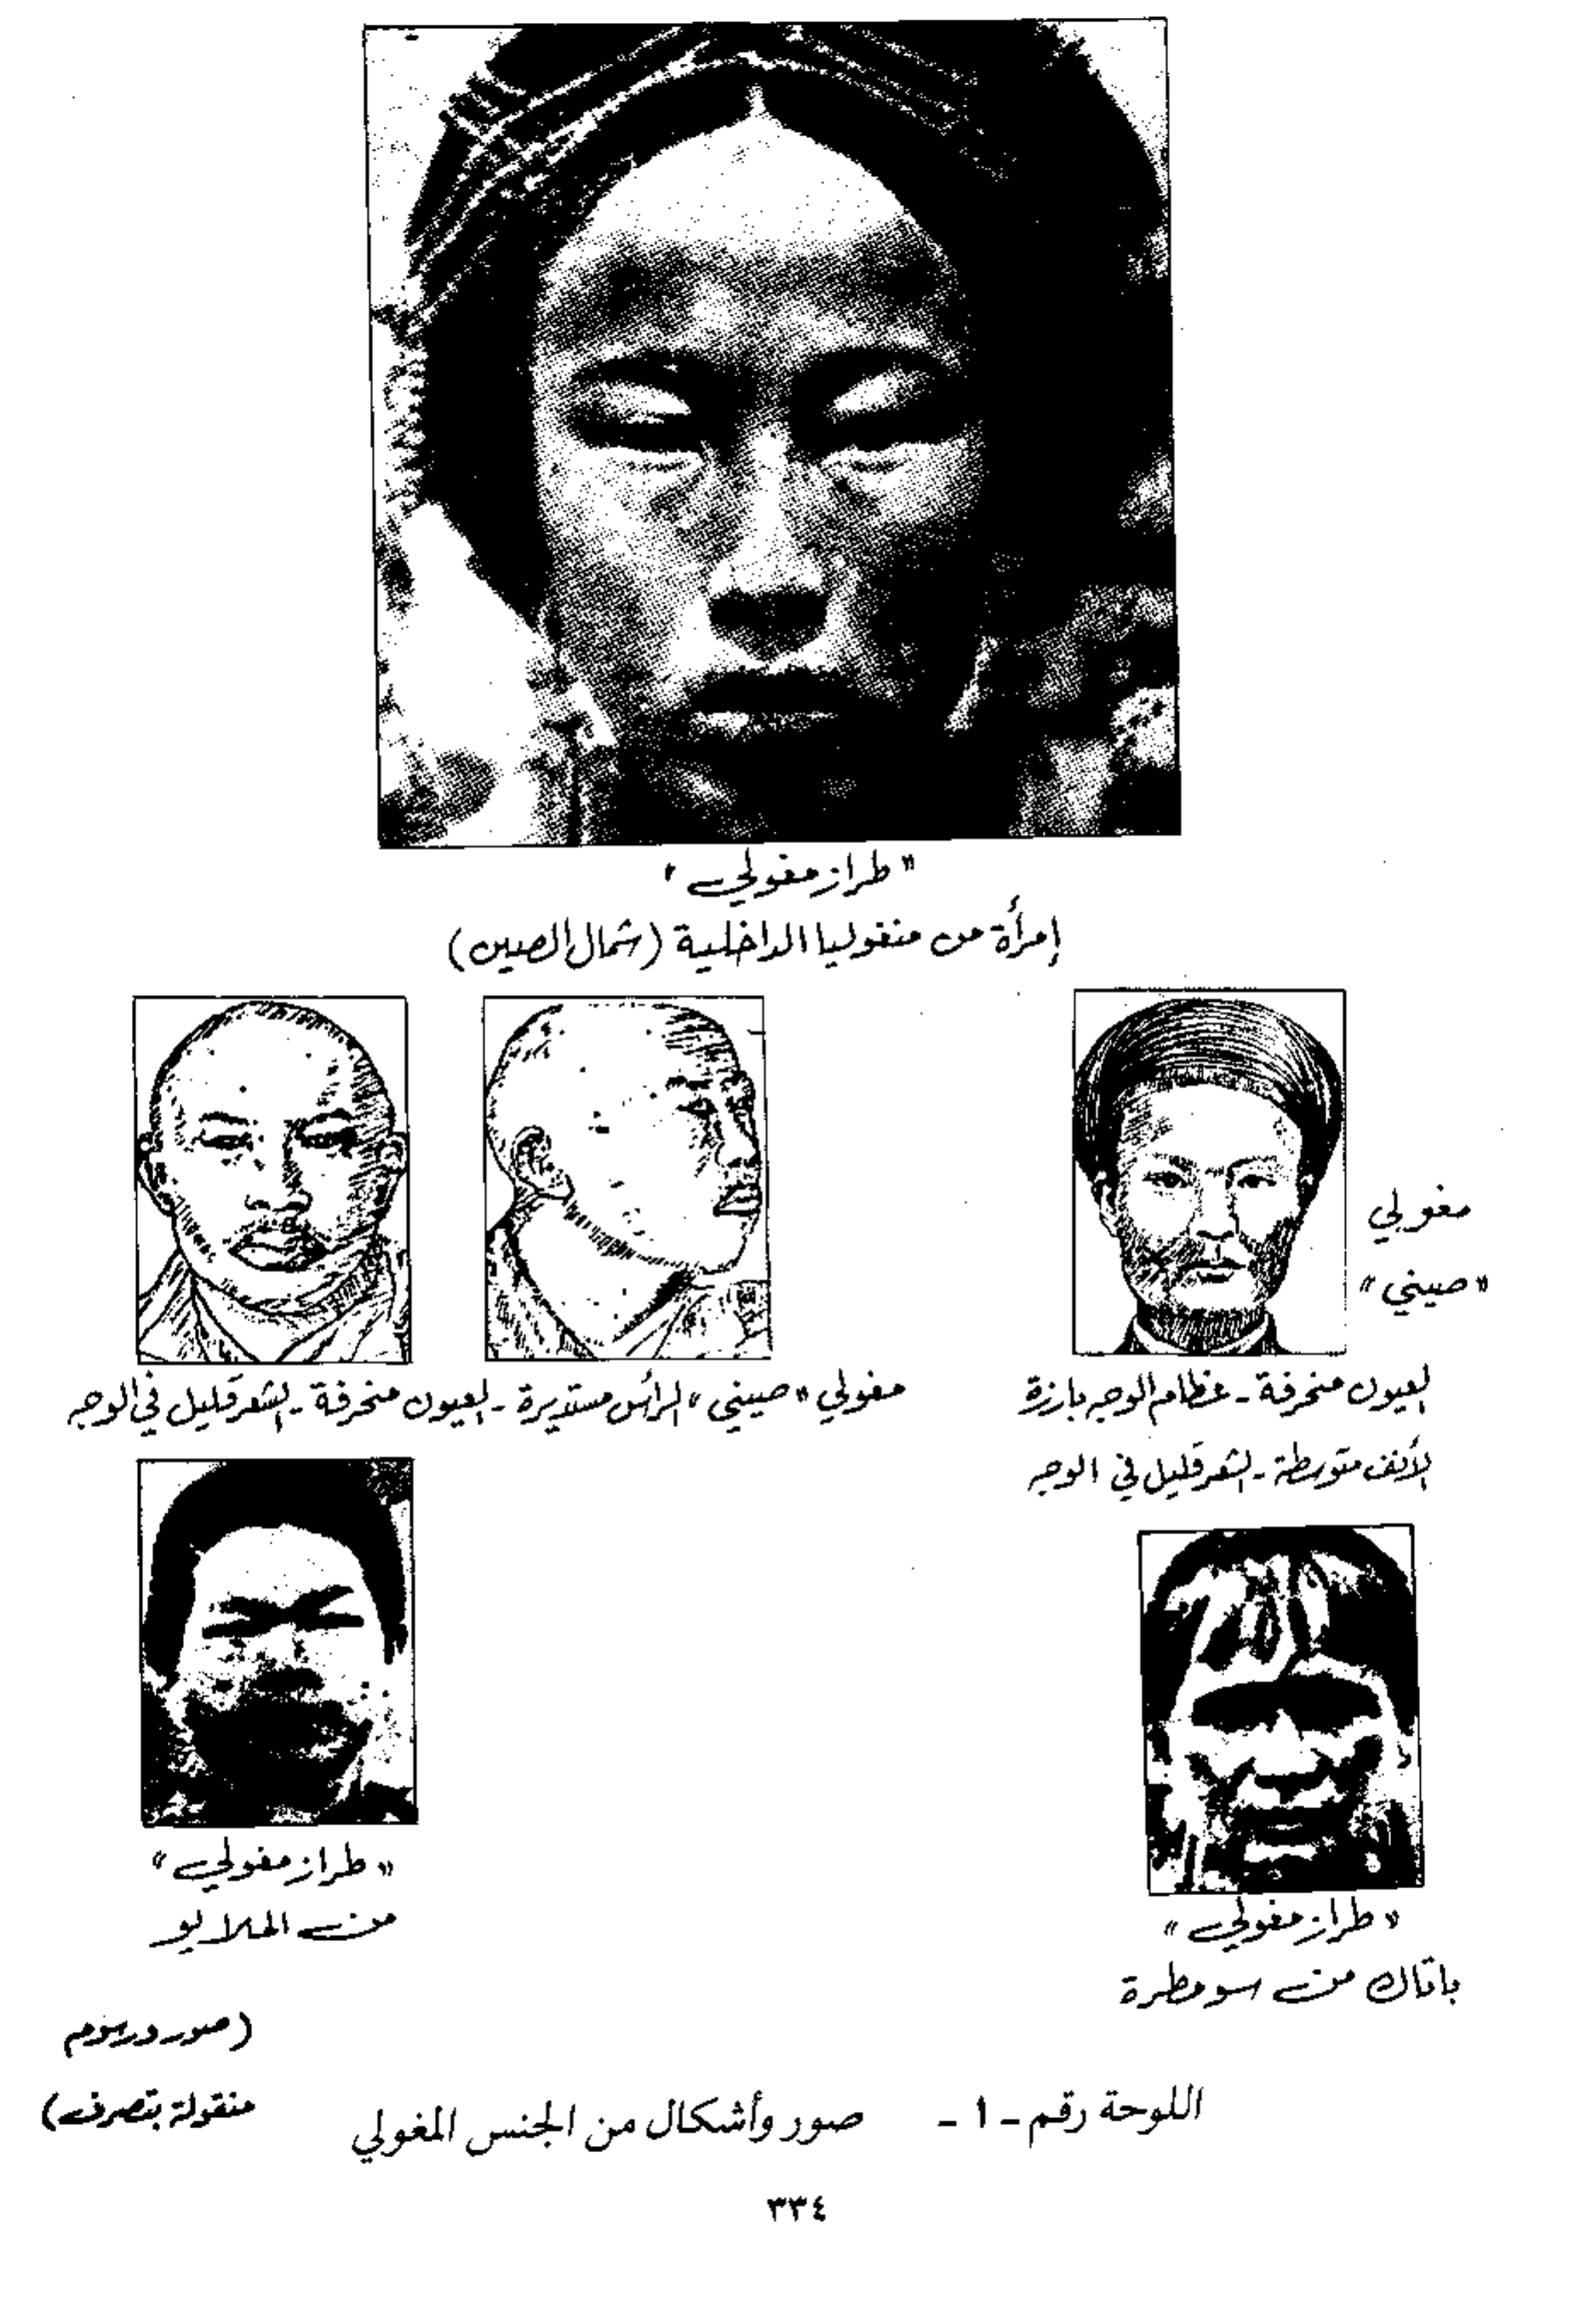 « طراز مغولي »
إمرأة من منغوليا الداخلية (شمال الصين)
مغولي
« صيني »
العيون منحرفة - عظام الوجه بارزة
الأنف متوسطة - الشعر قليل في الوجه
مغولي « صيني » الرأس مستديرة - العيون منحرفة - الشعر قليل في الوجه
« طراز مغولي »
باتاك من سومطرة
« طراز مغولي »
من الملايو
(صور ورسوم
منقولة بتصرف)
اللوحة رقم - ١ - صور وأشكال من الجنس المغولي
٣٣٤